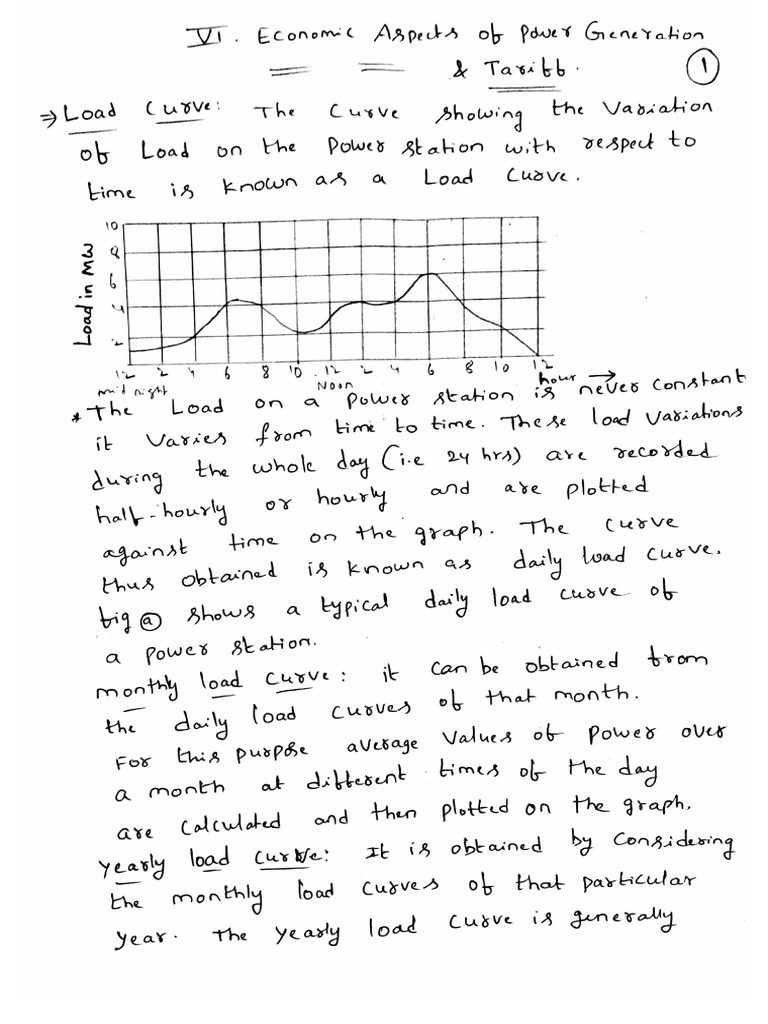 VI. Economic Aspects of Power Generation
& Tariff. 1
⇒ Load Curve: The Curve showing the Variation
of Load on the Power station with respect to
time is known as a Load Curve.
10
8
6
4
2
Load in MW
12 2 4 6 8 10 12 2 4 6 8 10 12
mid night Noon hour →
* The Load on a power station is never constant
it varies from time to time. These load variations
during the whole day (i.e 24 hrs) are recorded
half-hourly or hourly and are plotted
against time on the graph. The curve
thus obtained is known as daily load curve.
fig (a) shows a typical daily load curve of
a power station.
monthly load curve: it can be obtained from
the daily load curves of that month.
For this purpose average values of power over
a month at different times of the day
are calculated and then plotted on the graph.
yearly load curve: It is obtained by considering
the monthly load curves of that particular
year. The yearly load curve is generally